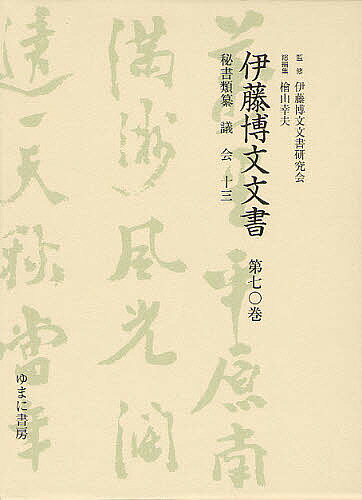 監修 伊藤博文文書研究会
総編集 檜山幸夫
伊藤博文文書 第七〇巻
秘書類纂 議会 十三
ゆまに書房
満洲風光闊